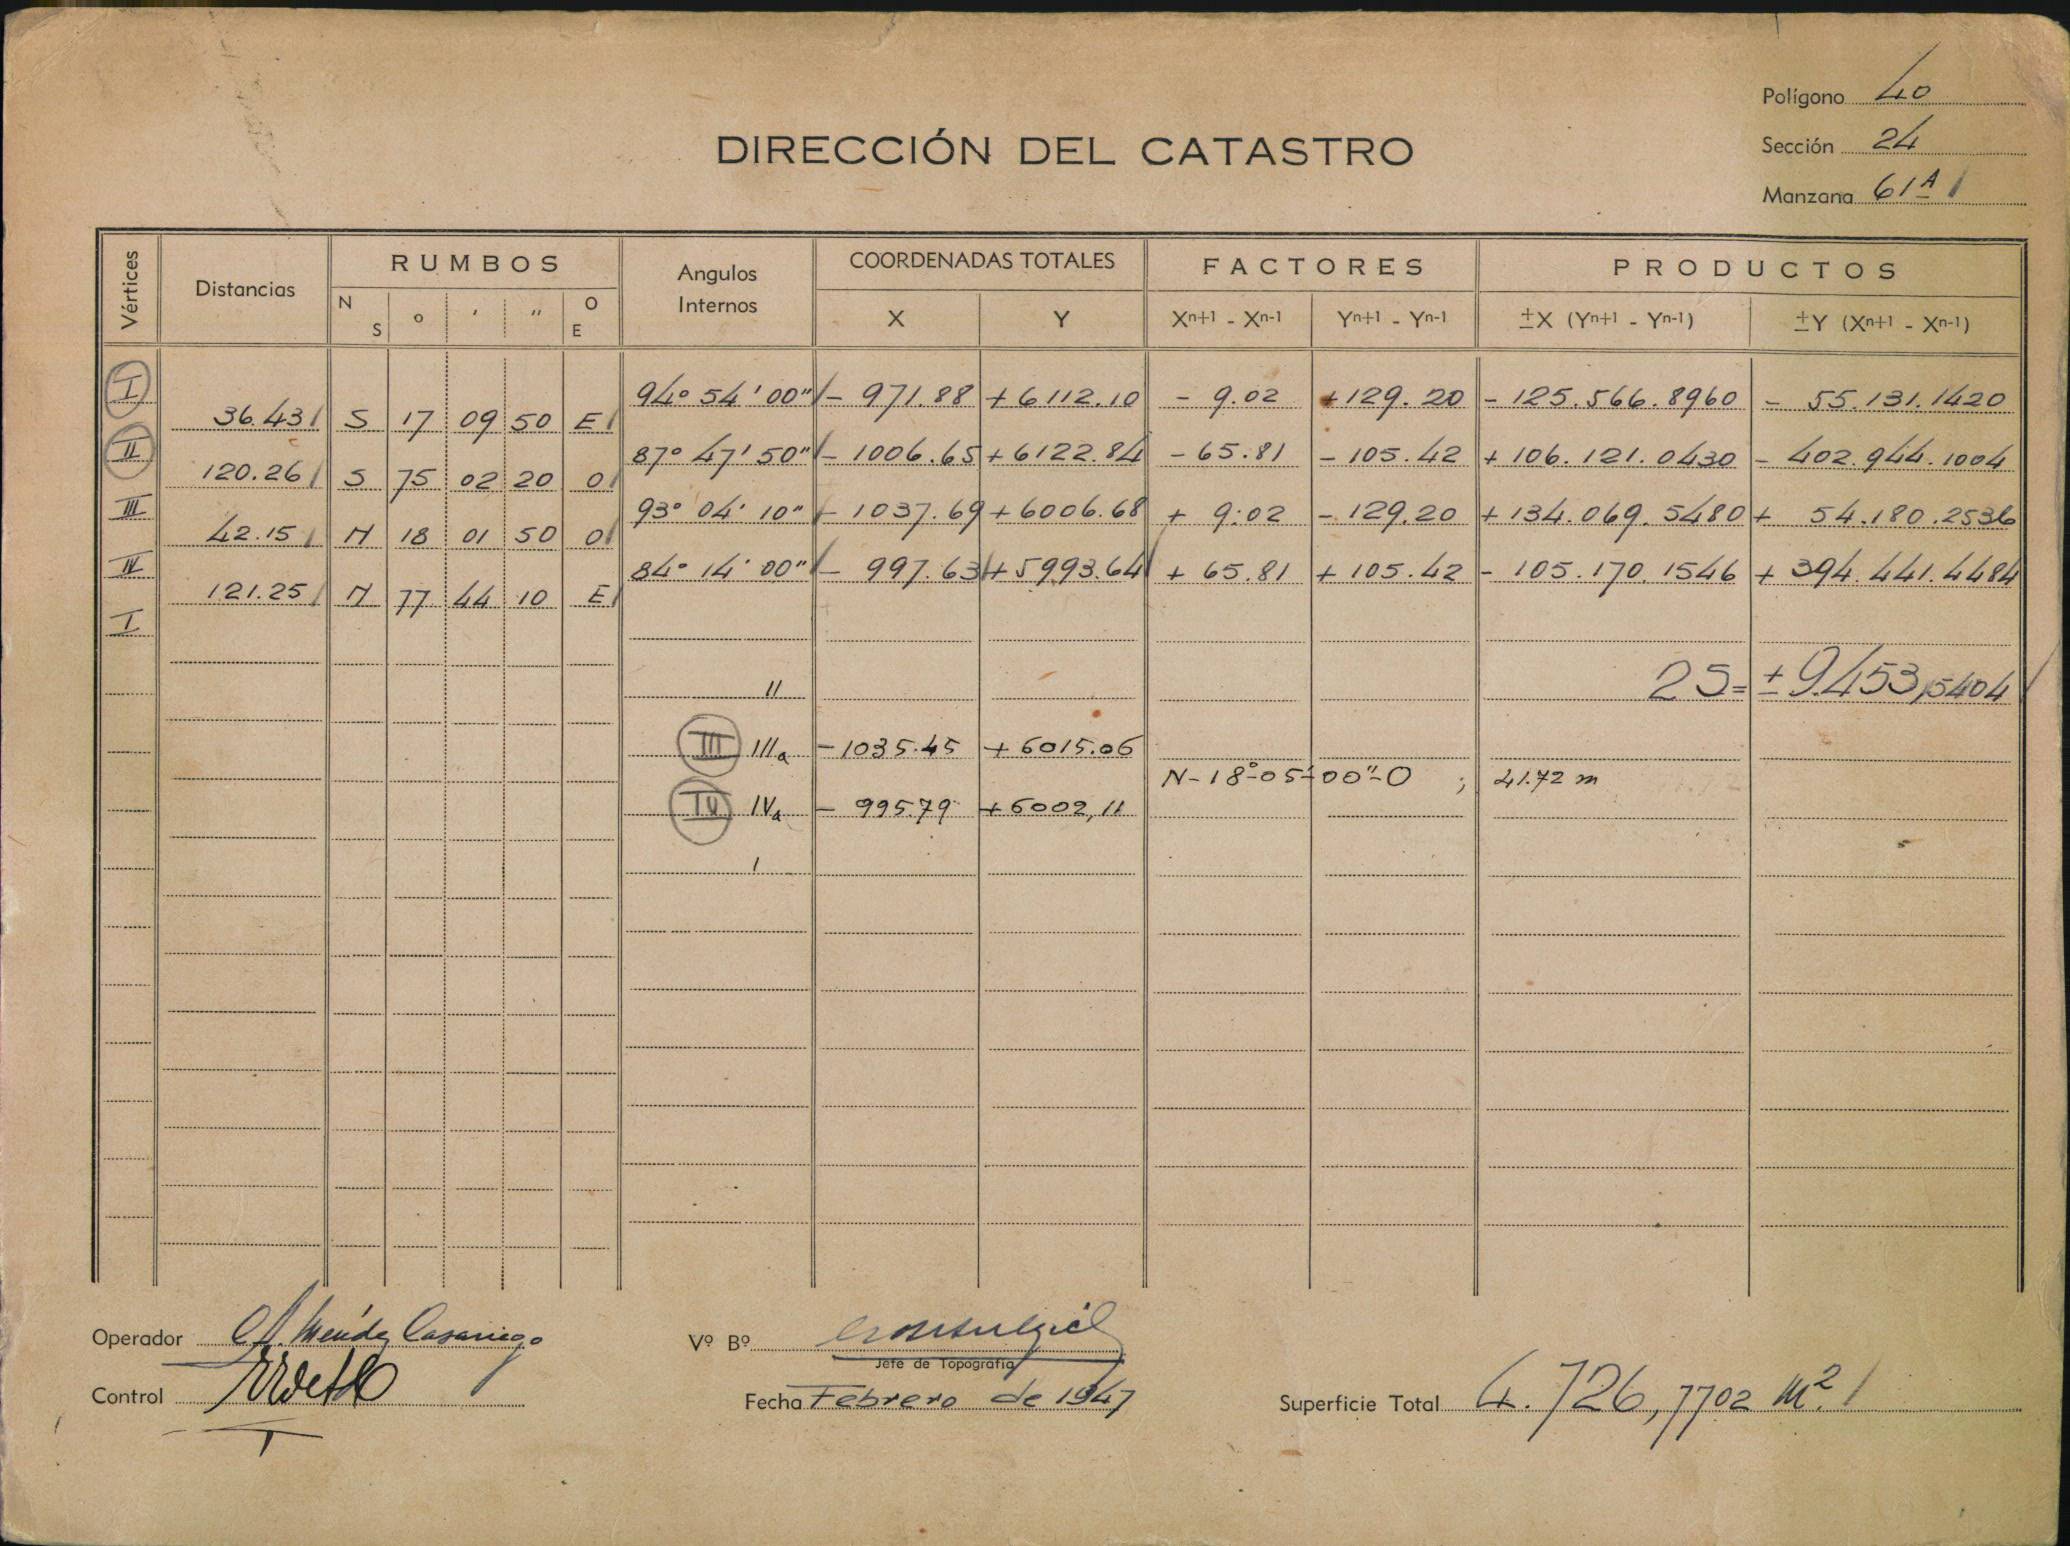 Polígono 40
DIRECCIÓN DEL CATASTRO
Sección 24
Manzana 61A
Vértices Distancias RUMBOS Angulos Internos COORDENADAS TOTALES FACTORES PRODUCTOS
N S ° ' " O E X Y Xn+1 - Xn-1 Yn+1 - Yn-1 ±X (Yn+1 - Yn-1) ±Y (Xn+1 - Xn-1)
I 94° 54' 00" - 971.88 +6112.10 - 9.02 +129.20 - 125.566.8960 - 55.131.1420
36.43 S 17 09 50 E
II 87° 47' 50" - 1006.65 +6122.84 - 65.81 - 105.42 + 106.121.0430 - 402.944.1004
120.26 S 75 02 20 O
III 93° 04' 10" - 1037.69 +6006.68 + 9.02 - 129.20 + 134.069.5480 + 54.180.2536
42.15 N 18 01 50 O
IV 84° 14' 00" - 997.63 +5993.64 + 65.81 + 105.42 - 105.170.1546 + 394.441.4484
121.25 N 77 44 10 E
I
II 2S= ±9.453,5404
III IIIa -1035.45 +6015.06
N-18°-05'-00"-O ; 41.72 m
IV IVa - 995.79 +6002,11
I
Operador Méndez Casariego
Vº Bº
Jefe de Topografía
Control
Fecha Febrero de 1947
Superficie Total 4.726,7702 m².